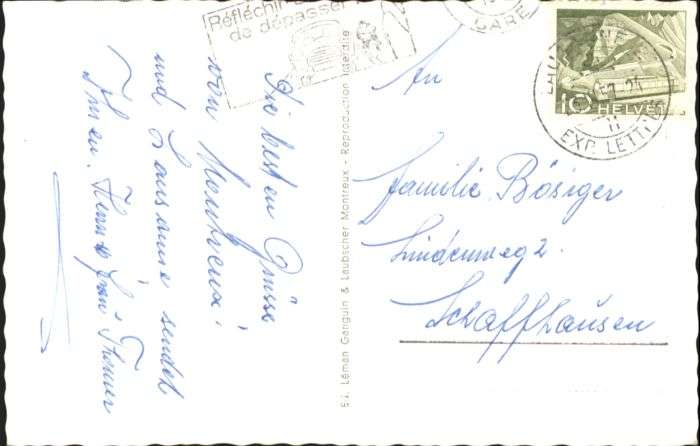 Réfléchir
de dépasser
GARE
LAUSANNE
EXP. LETTRES
10 HELVETIA
Die besten Grüsse
von Montreux
und Lausanne sendet
Ihnen, Herr & Frau Thommer
E.I. Léman Ganguin & Laubscher Montreux - Reproduction interdite
An
Familie Bösiger
Lindenweg 2.
Schaffhausen